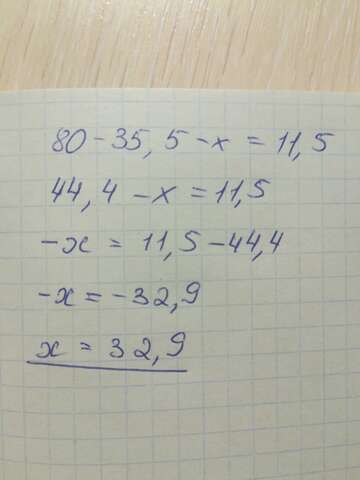 80 - 35,5 - x = 11,5
44,4 - x = 11,5
-x = 11,5 - 44,4
-x = -32,9
x = 32,9